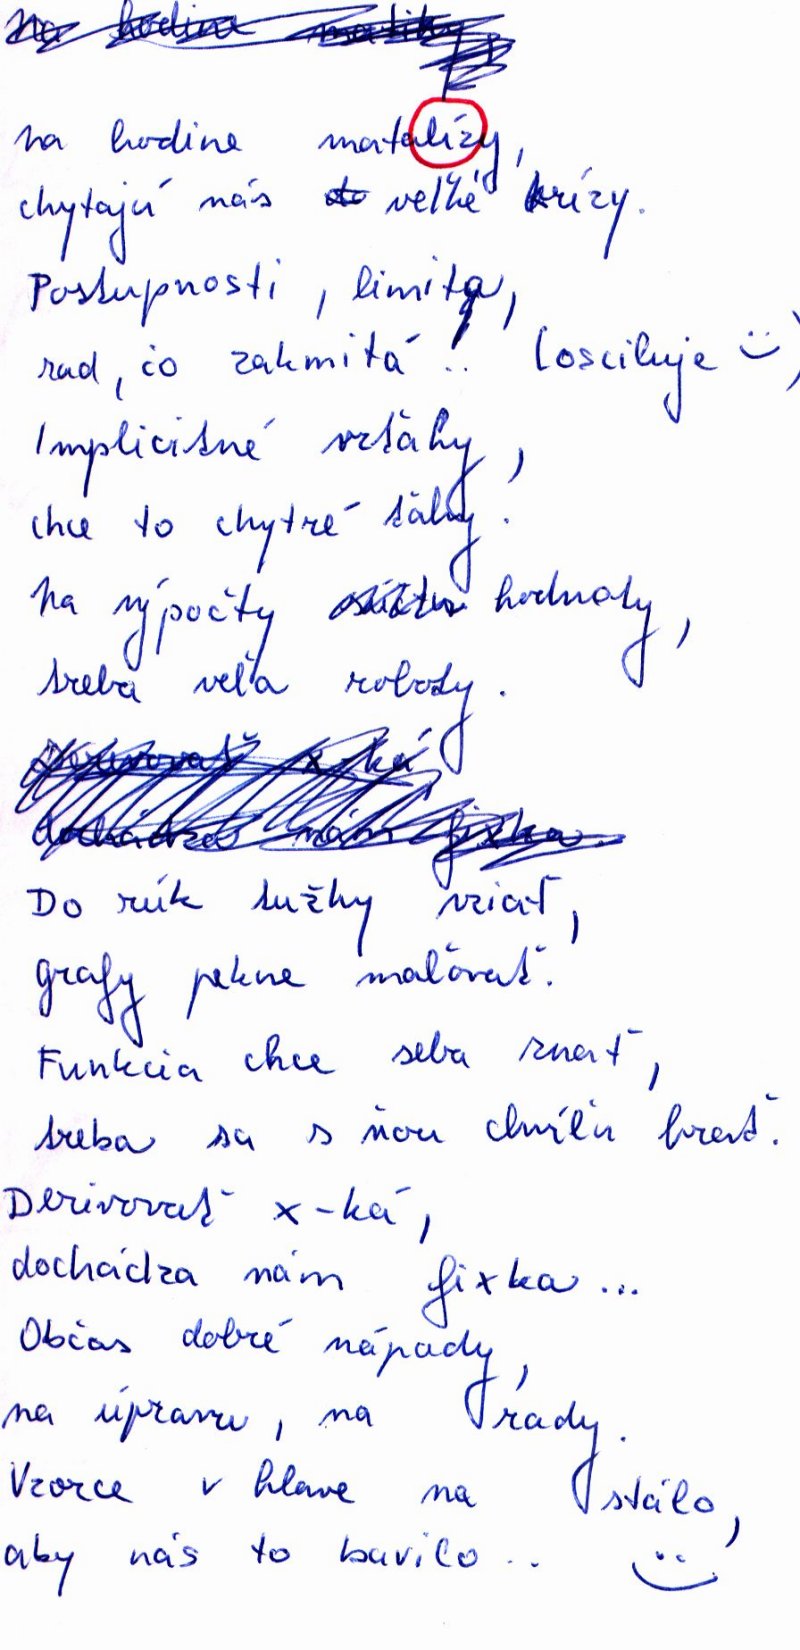 Na hodine matiky
na hodine matalízy,
chytajú nás veľké krízy.
Postupnosti, limita,
rad, čo zakmitá.. (osciluje ¨)
Implicitné vzťahy,
chce to chytré ťahy.
Na výpočty hodnoty,
treba veľa roboty.
Derivovať x-ká
dochádza nám fixka.
Do rúk tužky vziať,
grafy pekne maľovať.
Funkcia chce seba znať,
treba sa s ňou chvíľu hrať.
Derivovať x-ká,
dochádza nám fixka...
Občas dobré nápady,
na úpravu, na rady.
Vzorce v hlave na stálo,
aby nás to bavilo..